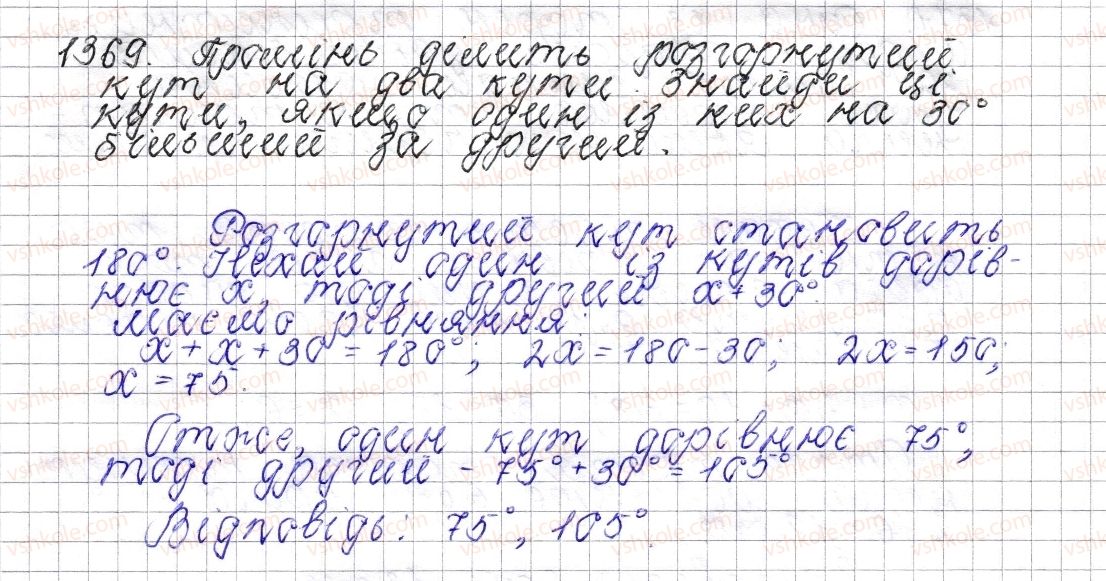 1369. Промінь ділить розгорнутий
кут на два кути. Знайди ці
кути, якщо один із них на 30°
більший за другий.
Розгорнутий кут становить
180°. Нехай один із кутів дорів-
нює x, тоді другий x + 30°
Маємо рівняння:
x + x + 30 = 180°; 2x = 180 - 30; 2x = 150;
x = 75.
Отже, один кут дорівнює 75°,
тоді другий - 75° + 30° = 105°
Відповідь: 75°, 105°.